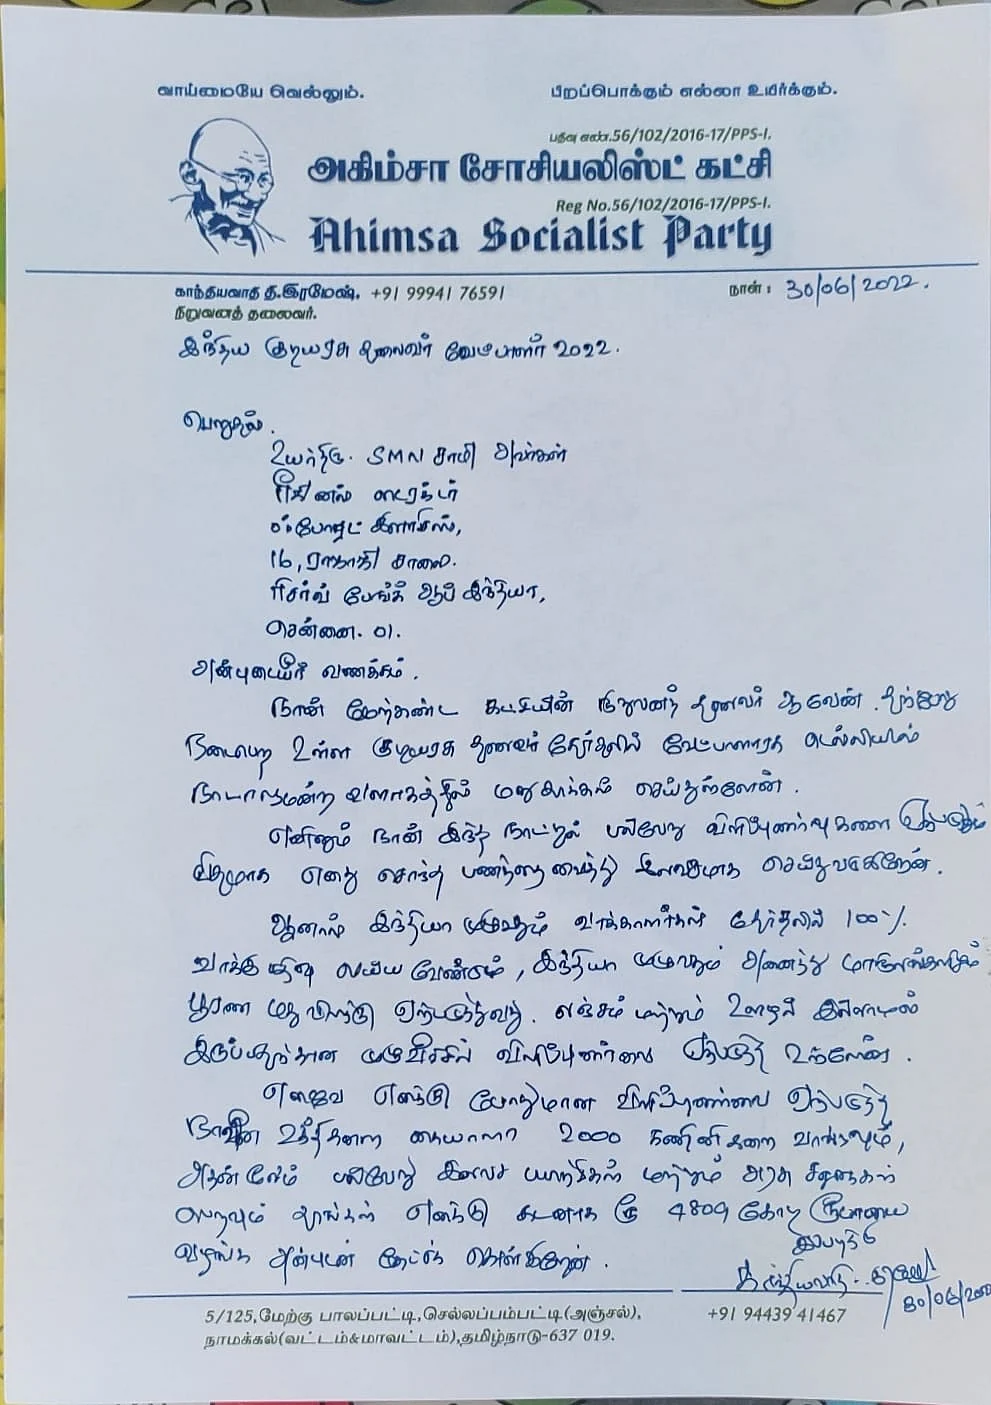 வாய்மையே வெல்லும்.
பிறப்பொக்கும் எல்லா உயிர்க்கும்.
பதிவு எண்.56/102/2016-17/PPS-I.
அகிம்சா சோசியலிஸ்ட் கட்சி
Reg No.56/102/2016-17/PPS-I.
Ahimsa Socialist Party
காந்தியவாதி த.இரமேஷ். +91 99941 76591
நாள் : 30/06/2022.
நிறுவனத் தலைவர்.
இந்திய குடியரசு தலைவர் வேட்பாளர் 2022.
பெறுதல்.
உயர்திரு. SMN சாமி அவர்கள்
ரீஜினல் டைரக்டர்
16, ராஜாஜி சாலை.
ரிசர்வ் பேங்க் ஆப் இந்தியா,
சென்னை. 01.
அன்புடையீர் வணக்கம்.
நான் மேற்கண்ட கட்சியின் நிறுவனத் தலைவர் ஆவேன். தற்போது
நடைபெற உள்ள குடியரசு தலைவர் தேர்தலில் வேட்பாளராக டெல்லியில்
நாடாளுமன்ற வளாகத்தில் மனு தாக்கல் செய்துள்ளேன்.
எனினும் நான் இந்த நாட்டில் பல்வேறு விழிப்புணர்வுகளை ஏற்படுத்தும்
விதமாக எனது சொந்த பணத்தை வைத்து இலவசமாக செய்து வருகிறேன்.
ஆனால் இந்தியா முழுவதும் வாக்காளர்கள் தேர்தலில் 100%
வாக்கு பதிவு செய்ய வேண்டும், இந்தியா முழுவதும் அனைத்து மாநிலங்களிலும்
பூரண மதுவிலக்கு ஏற்படுத்துவது. லஞ்சம் மற்றும் ஊழல் இல்லாமல்
இருப்பதற்கான முழுவீச்சில் விழிப்புணர்வை ஏற்படுத்த உள்ளேன்.
எனவே எனக்கு போதுமான விழிப்புணர்வை ஏற்படுத்த
நவீன உத்திகளை கையாள 2000 கணினிகளை வாங்கவும்,
அதன் மூலம் பல்வேறு இலவச பயிற்சிகள் மற்றும் அரசு சலுகைகள்
பெறவும் தாங்கள் எனக்கு கடனாக ரூ 4809 கோடி ரூபாயை
வழங்க அன்புடன் கேட்டுக் கொள்கிறேன்.
இப்படிக்கு
காந்தியவாதி. த.ரமேஷ்
30/06/2022
5/125,மேற்கு பாலப்பட்டி,செல்லப்பம்பட்டி(அஞ்சல்),
நாமக்கல்(வட்டம்&மாவட்டம்),தமிழ்நாடு-637 019.
+91 94439 41467